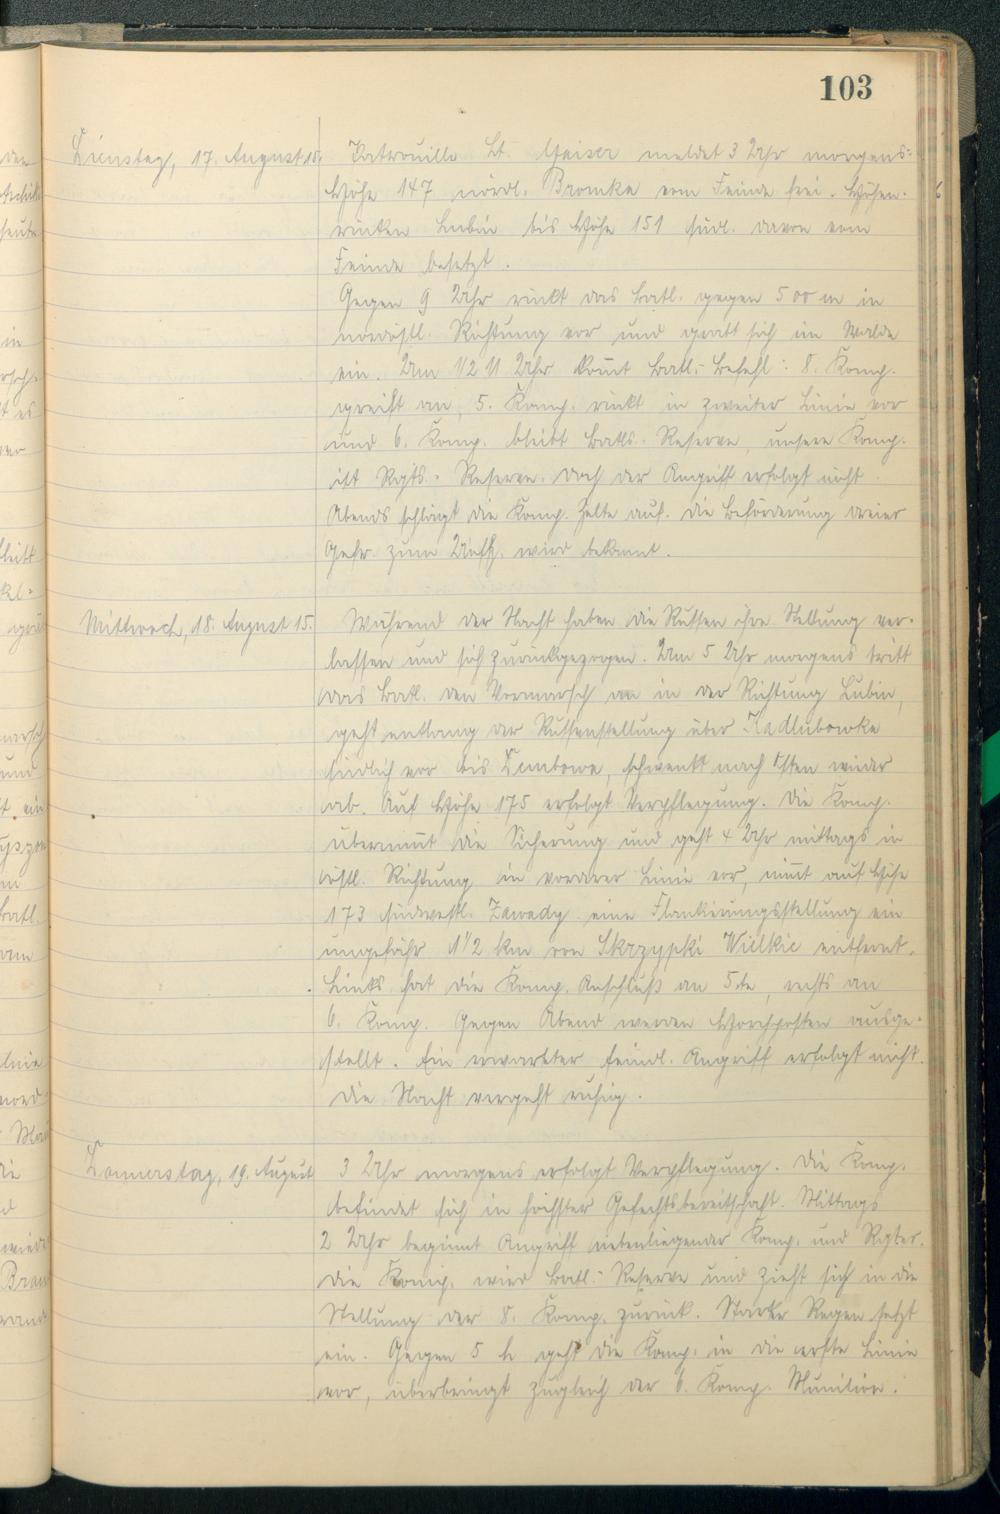 103
Dienstag, 17. August 15.
Patrouille Lt. Maiser meldet 3 Uhr morgens:
Höhe 147 nördl. Bronka vom Feinde frei. Höhen-
rücken Lubin bis Höhe 151 südl. davon vom
Feinde besetzt.
Gegen 9 Uhr rückt das Batl. gegen 500 m in
nordöstl. Richtung vor und gräbt sich im Walde
ein. Um 1/2 11 Uhr kom̅t Batl.-Befehl: 8. Komp.
greift an, 5. Komp. rückt in zweiter Linie vor
und 6. Komp. bleibt Batls.-Reserve, unsere Komp.
ist Rgts.-Reserve. Doch der Angriff erfolgt nicht.
Abends schlägt die Komp. Zelte auf. Die Beförderung dreier
Gefr. zum Uffz. wird bekannt.
Mittwoch, 18. August 15.
Während der Nacht haben die Russen ihre Stellung ver-
lassen und sich zurückgezogen. Um 5 Uhr morgens tritt
das Batl. den Vormarsch an in der Richtung Lubin,
geht entlang der Russenstellung über Kadlubowka
südlich vor bis Dembowo, schwenkt nach Osten wieder
ab. Auf Höhe 175 erfolgt Verpflegung. Die Komp.
übernim̅t die Sicherung und geht 4 Uhr mittags in
östl. Richtung in vorderer Linie vor, nim̅t auf Höhe
173 südwestl. Zawady eine Flankierungsstellung ein
ungefähr 1 1/2 km von Skrzypki Wielkie entfernt.
Links hat die Komp. Anschluß an 5te, rechts an
6. Komp. Gegen Abend werden Horchposten ausge-
stellt. Ein erwarteter feindl. Angriff erfolgt nicht.
Die Nacht vergeht ruhig.
Donnerstag, 19. August
3 Uhr morgens erfolgt Verpflegung. Die Komp.
befindet sich in höchster Gefechtsbereitschaft. Mittags
2 Uhr beginnt Angriff nebenliegender Komp. und Rgter.
Die Komp. wird Batl.-Reserve und zieht sich in die
Stellung der 8. Komp. zurück. Starker Regen setzt
ein. Gegen 5 h geht die Komp. in die erste Linie
vor, überbringt zugleich der 6. Komp. Munition.